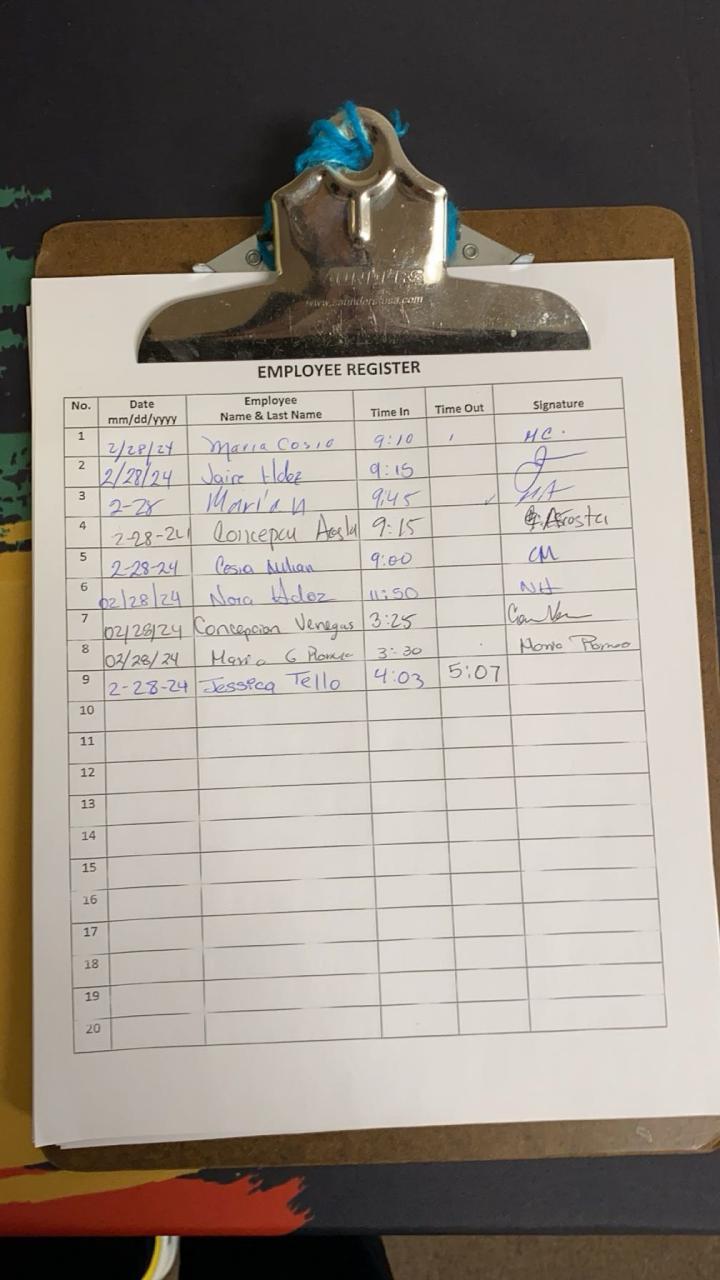 SAUNDERS
www.saunders-usa.com
EMPLOYEE REGISTER
No. Date mm/dd/yyyy Employee Name & Last Name Time In Time Out Signature
1 2/28/24 Maria Cosio 9:10 MC.
2 2/28/24 Jaire Hdez 9:15
3 2-28 Marian 9:45
4 2-28-24 Concepcu 9:15
5 2-28-24 9:00 CM
6 02/28/24 Nora Hdez 11:50 NH
7 02/28/24 Concepcion Venegas 3:25
8 02/28/24 Maria G 3:30
9 2-28-24 Jessica Tello 4:03 5:07
10
11
12
13
14
15
16
17
18
19
20